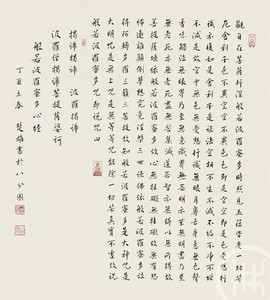 觀自在菩薩行深般若波羅蜜多時照見五蘊皆空度一切苦
厄舍利子色不異空空不異色色即是空空即是色受想行
識亦復如是舍利子是諸法空相不生不滅不垢不淨不增
不減是故空中無色無受想行識無眼耳鼻舌身意無色聲
香味觸法無眼界乃至無意識界無無明亦無無明盡乃至
無老死亦無老死盡無苦集滅道無智亦無得以無所得故
菩提薩埵依般若波羅蜜多故心無罣礙無罣礙故無有恐
怖遠離顛倒夢想究竟涅槃三世諸佛依般若波羅蜜多故
得阿耨多羅三藐三菩提故知般若波羅蜜多是大神咒是
大明咒是無上咒是無等等咒能除一切苦真實不虛故說
般若波羅蜜多咒即說咒曰
揭諦揭諦 波羅揭諦
波羅僧揭諦菩提薩婆訶
般若波羅蜜多心經
丁酉立春 楚雄書於八分園